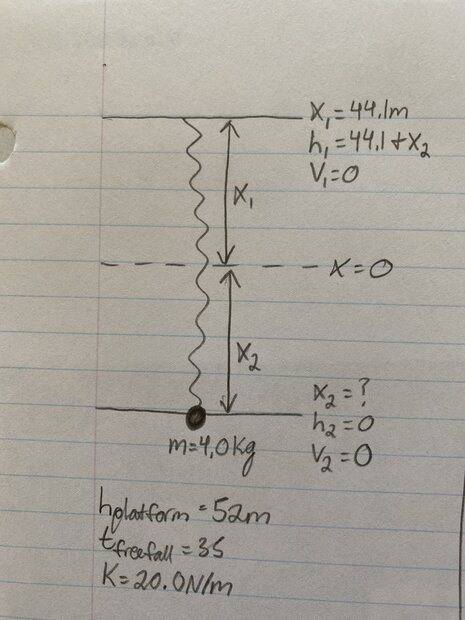 X₁ = 44.1m
h₁ = 44.1 + X₂
V₁ = 0
X₁
X = 0
X₂
X₂ = ?
h₂ = 0
V₂ = 0
m = 4.0 Kg
hplatform = 52m
tfreefall = 3s
K = 20.0 N/m